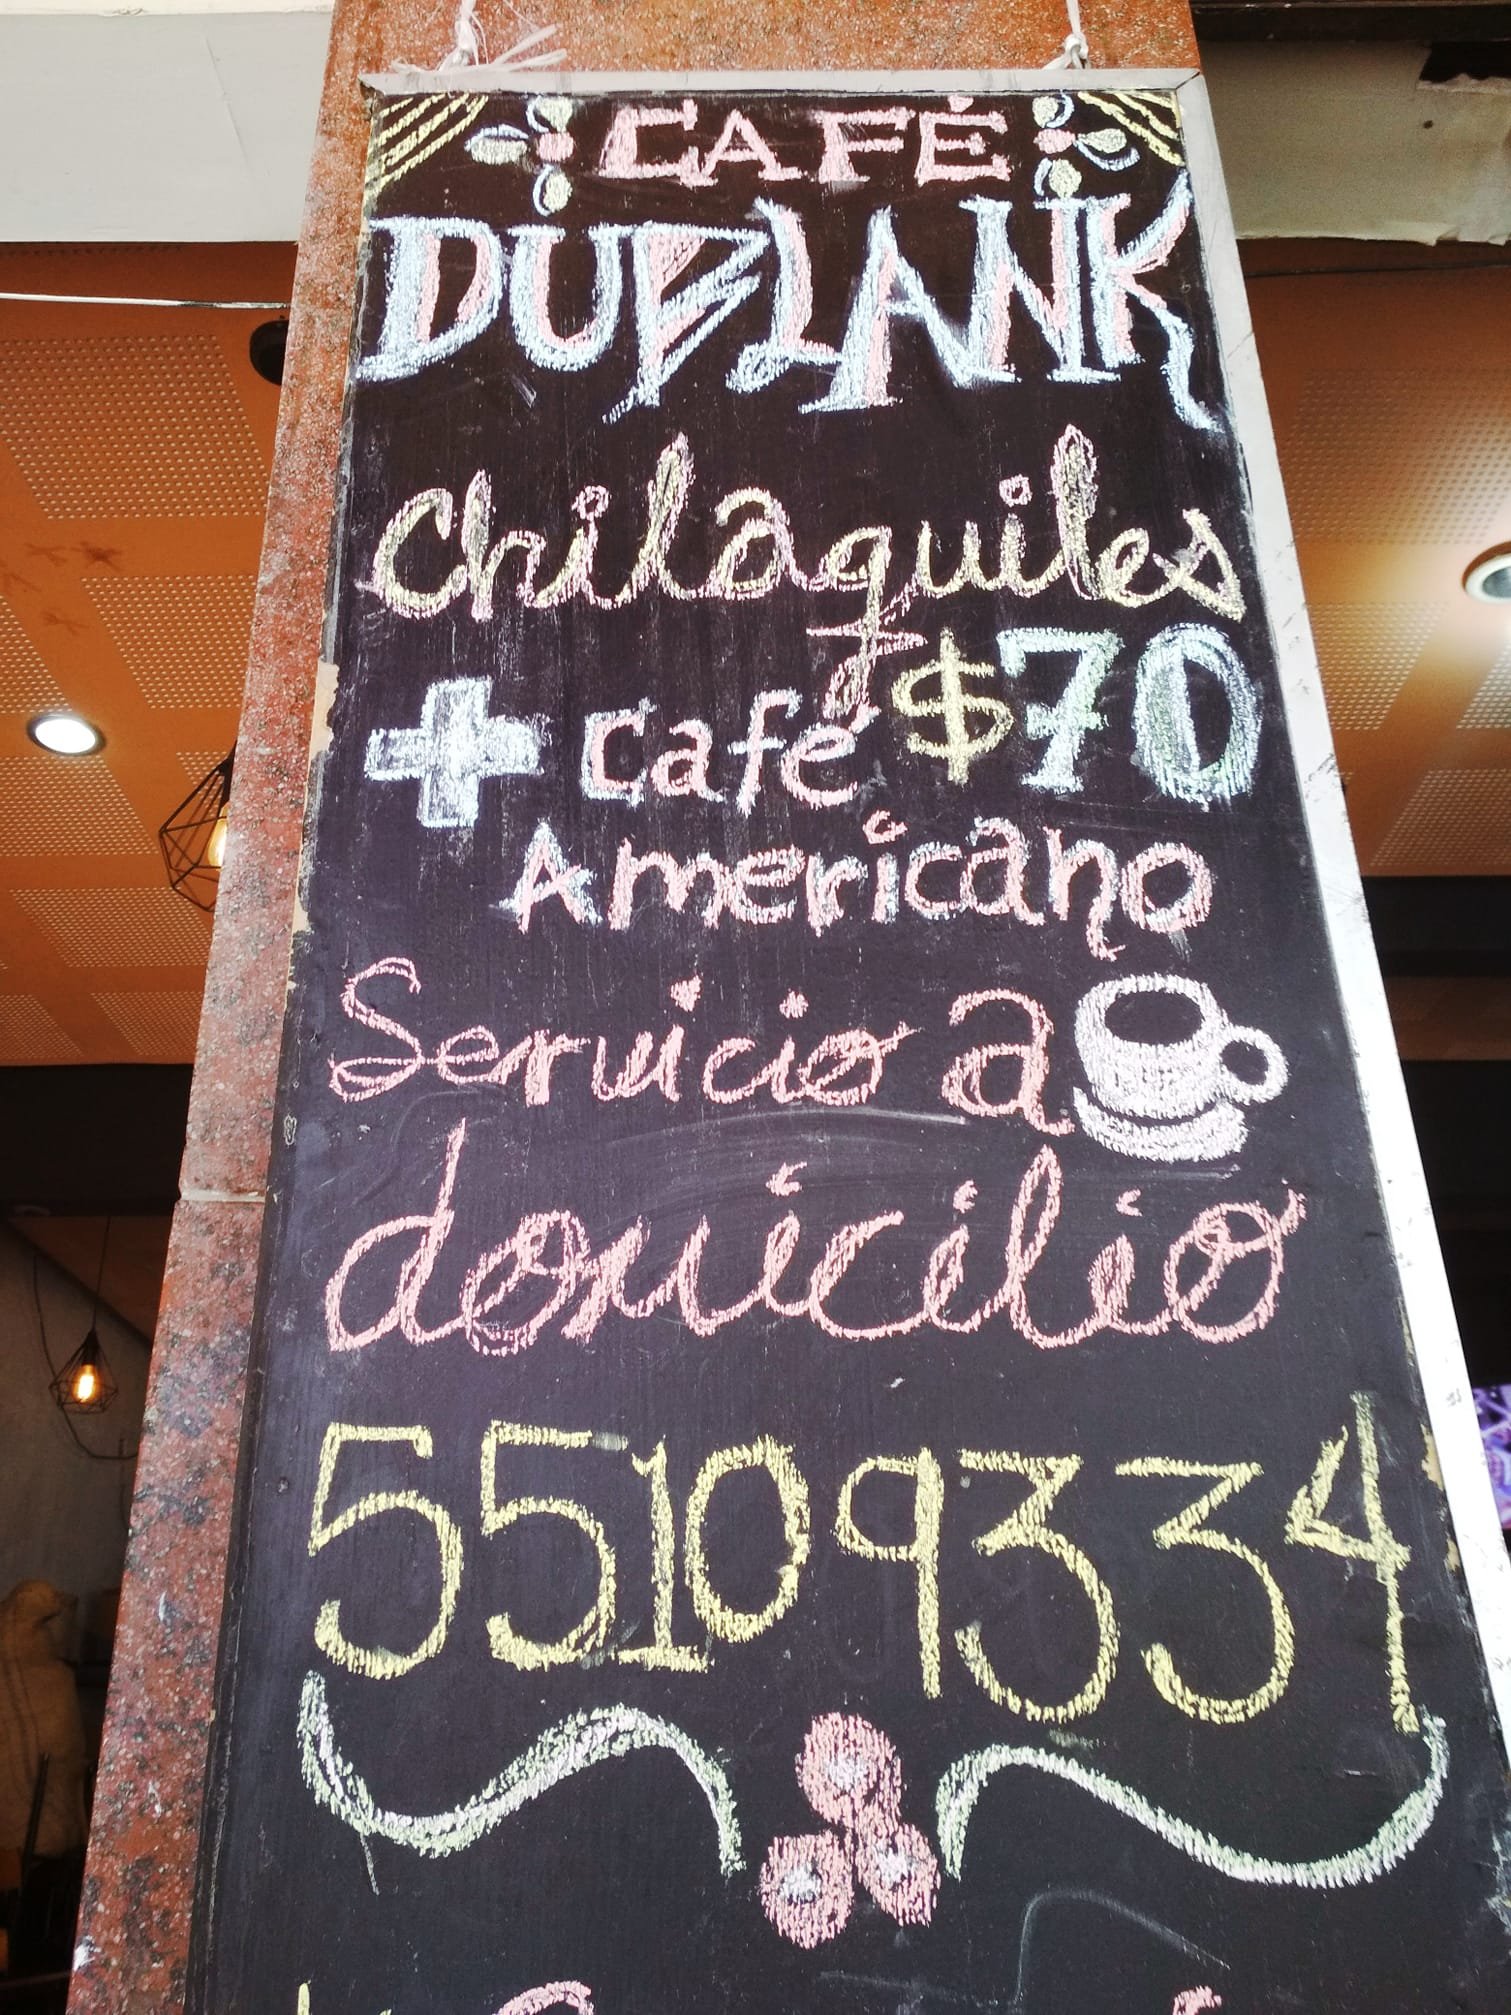 CAFÉ
DUBLANK
Chilaquiles
+ café $70
Americano
Servicio a
domicilio
55109334